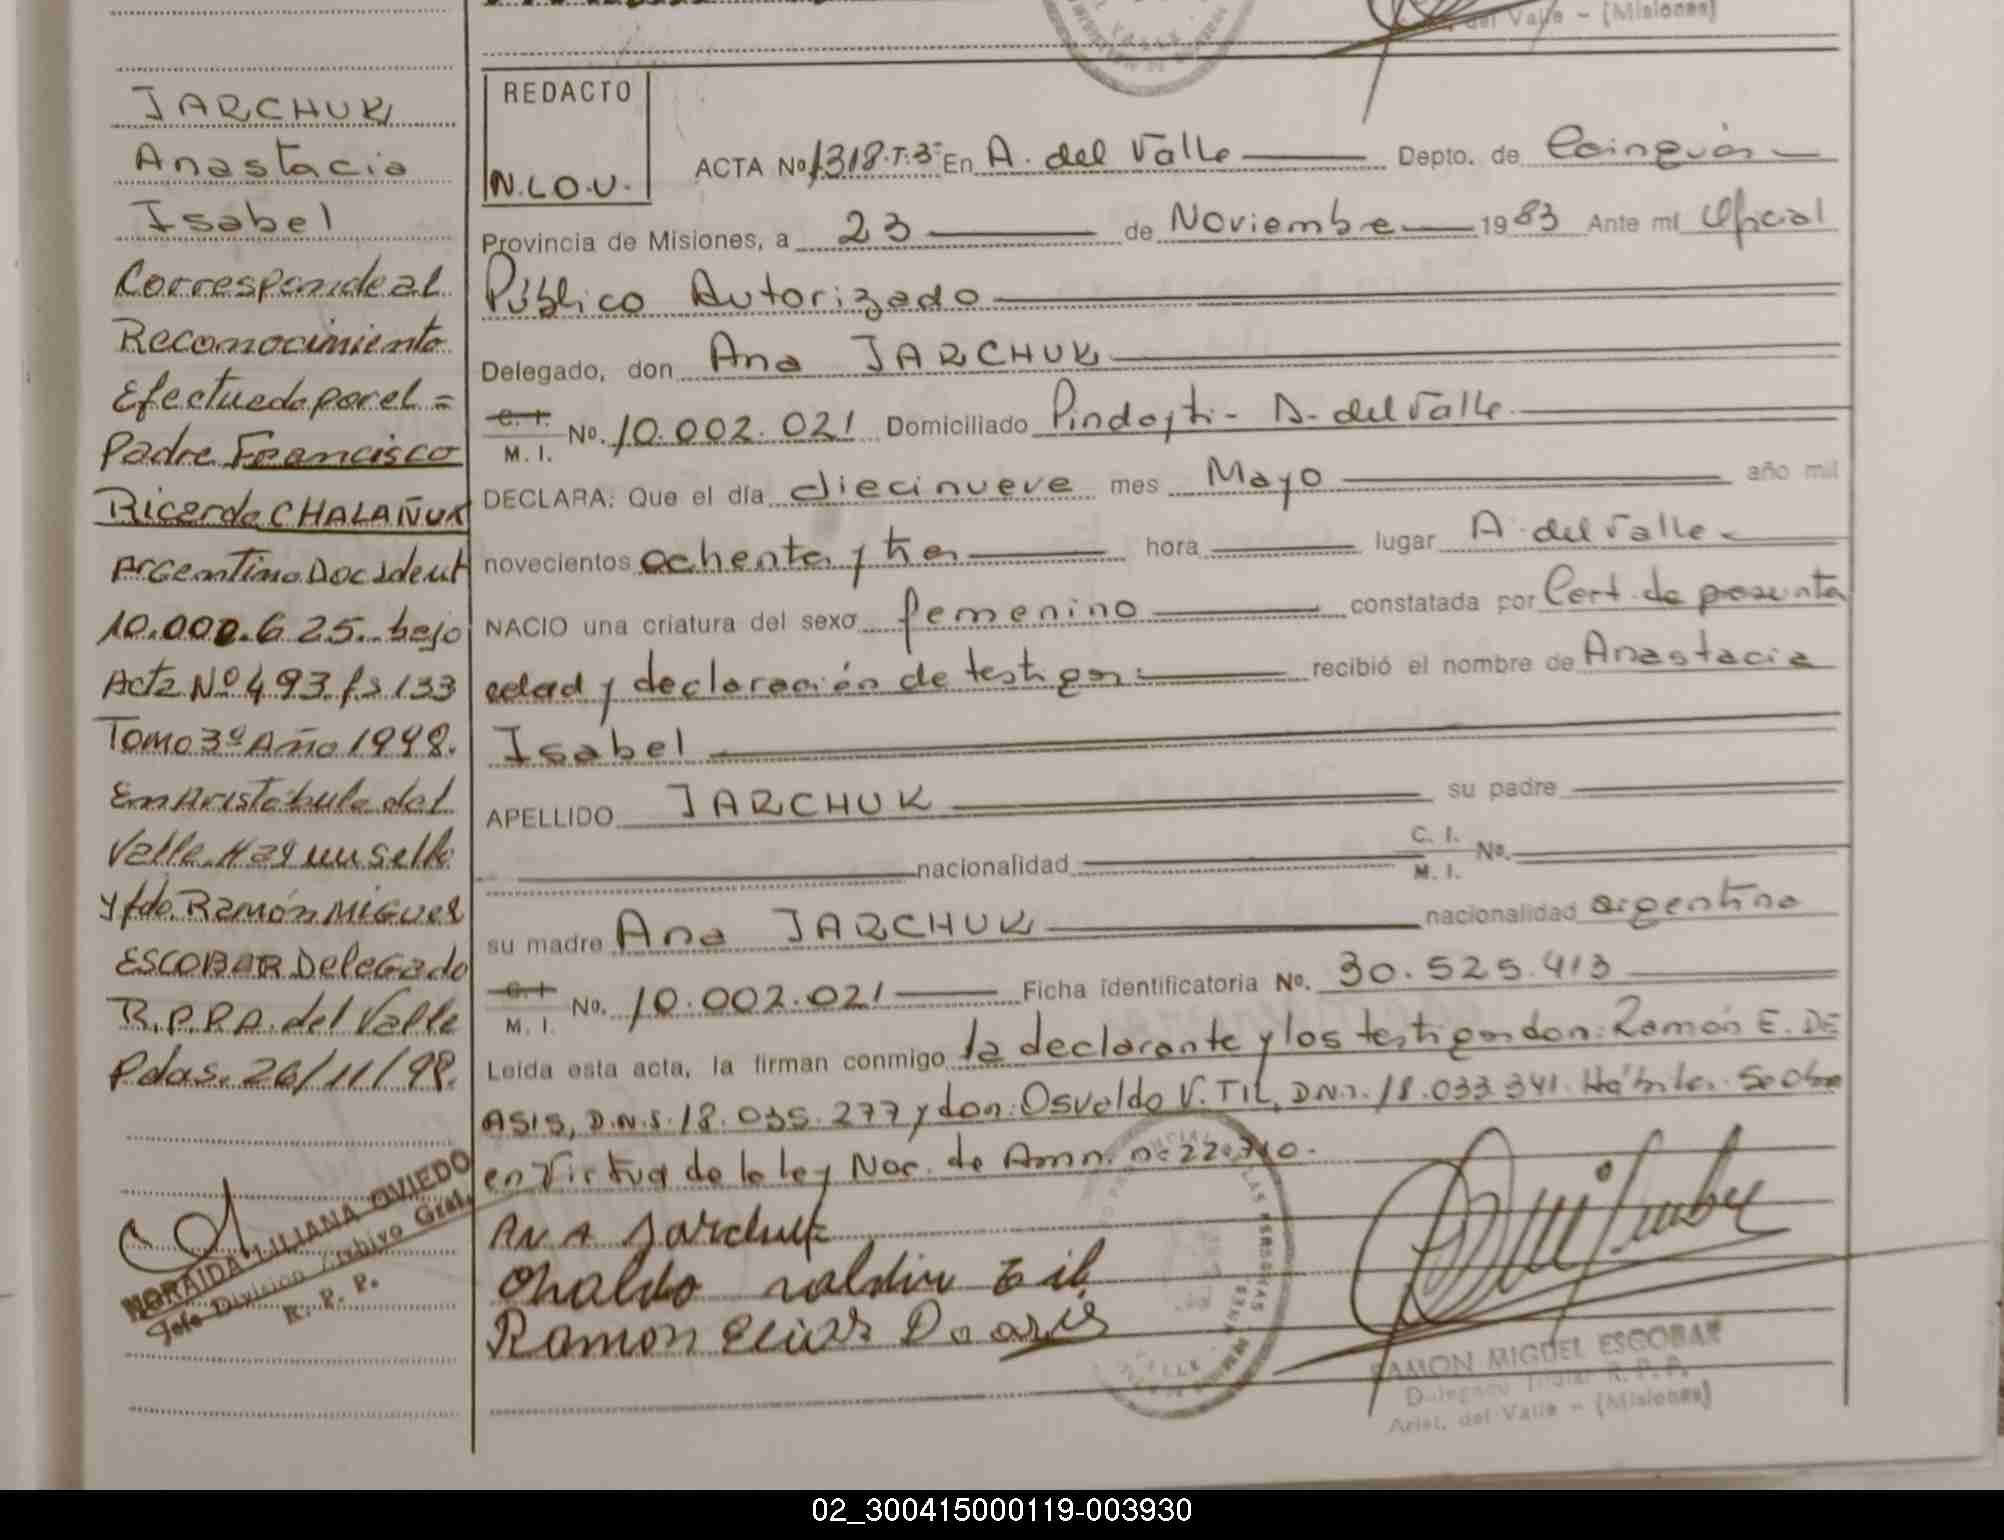 del Valle - (Misiones)
JARCHUK
Anastacia
Isabel
Corresponde al
Reconocimiento
Efectuado por el =
Padre Francisco
Ricardo CHALAÑUK
Argentino Doc Ident
10.000.625. bajo
Acta Nº 493. fs 133
Tomo 3º Año 1998.
En Aristóbulo del
Valle. Hay un sello
y fdo. Ramón Miguel
ESCOBAR Delegado
R.P.P.A. del Valle
Pdas. 26/11/98.
NORAIDA LILIANA OVIEDO
Jefe División Archivo Gral.
R. P. P.
REDACTO
N.L.O.V.
ACTA Nº 1318.T.3º En A. del Valle Depto. de Cainguás
Provincia de Misiones, a 23 de Noviembre 1983 Ante mí Oficial
Público Autorizado
Delegado, don Ana JARCHUK
C. I. M. I. Nº. 10.002.021 Domiciliado Pindayti - A. del Valle
DECLARA: Que el día diecinueve mes Mayo año mil
novecientos ochenta y tres hora lugar A. del Valle
NACIO una criatura del sexo femenino constatada por Cert. de presunta
edad y declaración de testigos recibió el nombre de Anastacia
Isabel
APELLIDO JARCHUK su padre
nacionalidad C. I. M. I. Nº.
su madre Ana JARCHUK nacionalidad argentina
C. I. M. I. Nº. 10.002.021 Ficha identificatoria Nº. 30.525.413
Leída esta acta, la firman conmigo la declarante y los testigos don: Ramón E. DE
ASIS, D.N.I. 18.035.277 y don: Osvaldo V. TIL, D.N.I. 18.033.341. Hábiles. Se labra
en Virtud de la ley Nac. de Amn. nº 22.710.
ANA Jarchuk
Osvaldo valdin Til
Ramon Elias De asis
RAMON MIGUEL ESCOBAR
Delegado Titular R.P.P.
Arist. del Valle - (Misiones)
02_300415000119-003930